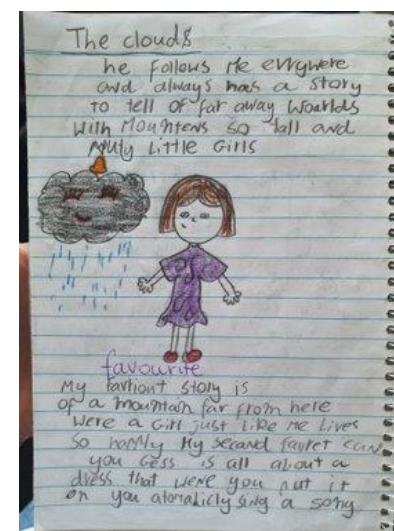 The clouds
he follows me evrywere
and always has a story
to tell of far away woarlds
with mountens so tall and
Little Girls
favourite
My story is
of a mountain far from here
were a girl just like me lives
so happly My second favret can
you Gess is all about a
dress that wene you put it
on you atomaticly sing a song